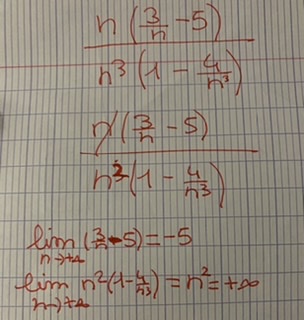 n (3/n - 5)
n³ (1 - 4/n³)
n (3/n - 5)
n² (1 - 4/n³)
lim (3/n - 5) = -5
n→+∞
lim n² (1 - 4/n³) = n² = +∞
n→+∞